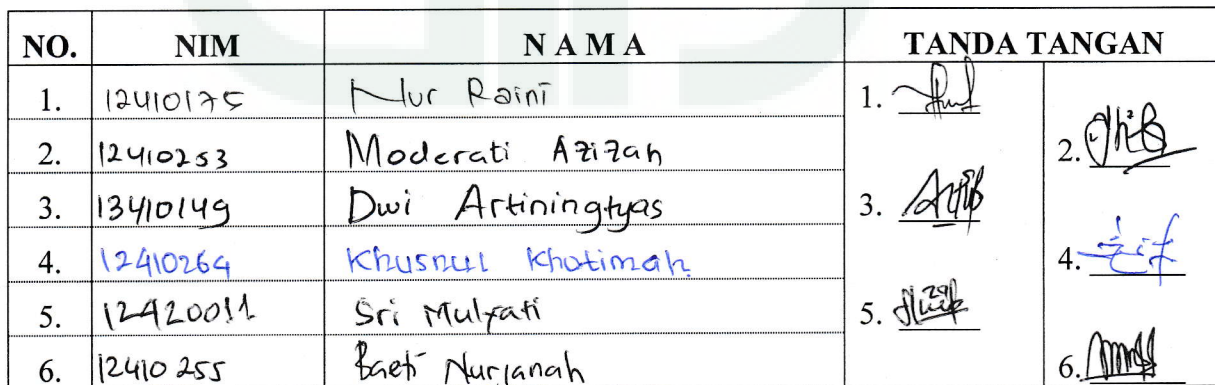 NO. NIM N A M A TANDA TANGAN
1. 12410175 Nur Raini 1.
2. 12410253 Moderati Azizah 2.
3. 13410149 Dwi Artiningtyas 3.
4. 12410264 Khusnul Khotimah 4.
5. 12420011 Sri Mulyati 5.
6. 12410255 Baeti Nurjanah 6.